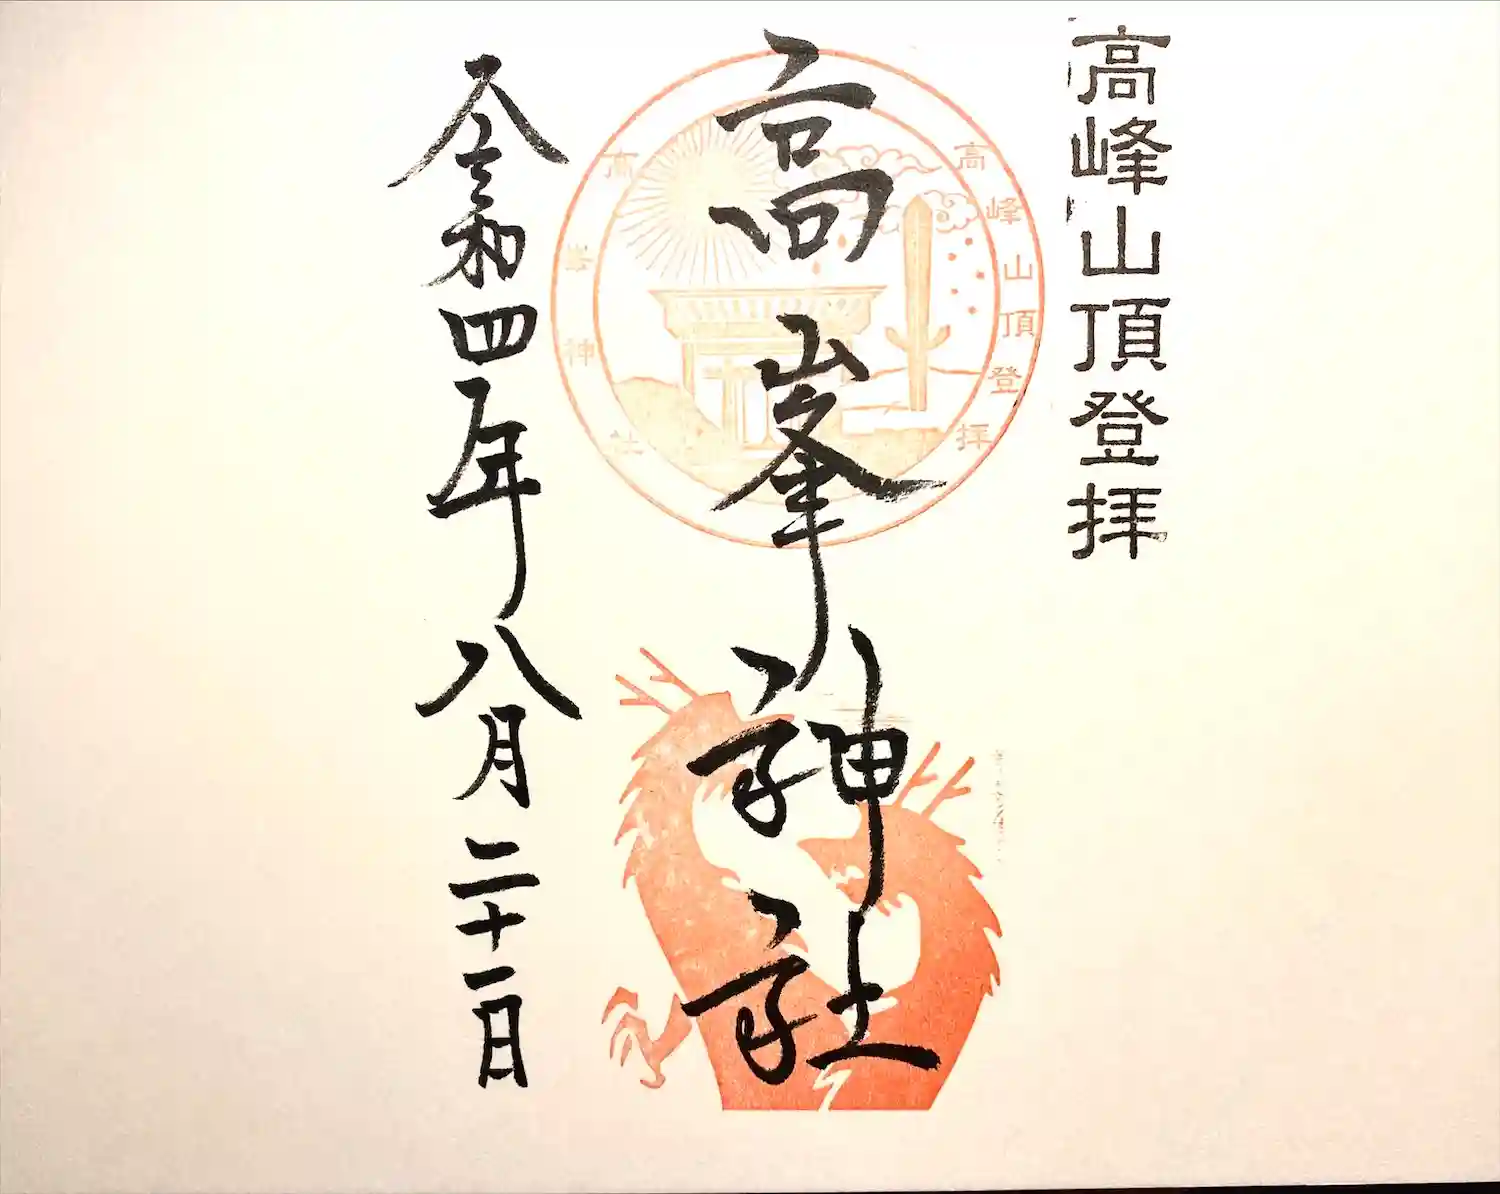 高峰山頂登拝
高峰山頂登拝
高峯神社
高峯神社
令和四年八月二十一日